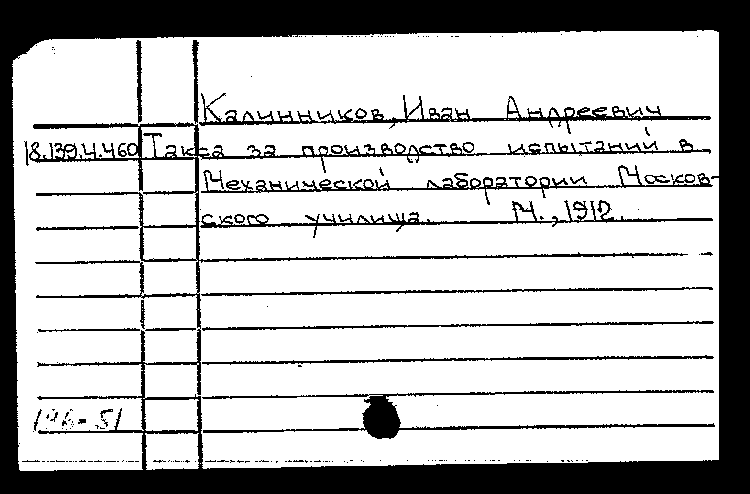 Калинников, Иван Андреевич
18.139.4.460 Такса за производство испытаний в
Механической лаборатории Москов-
ского училища. М., 1912.